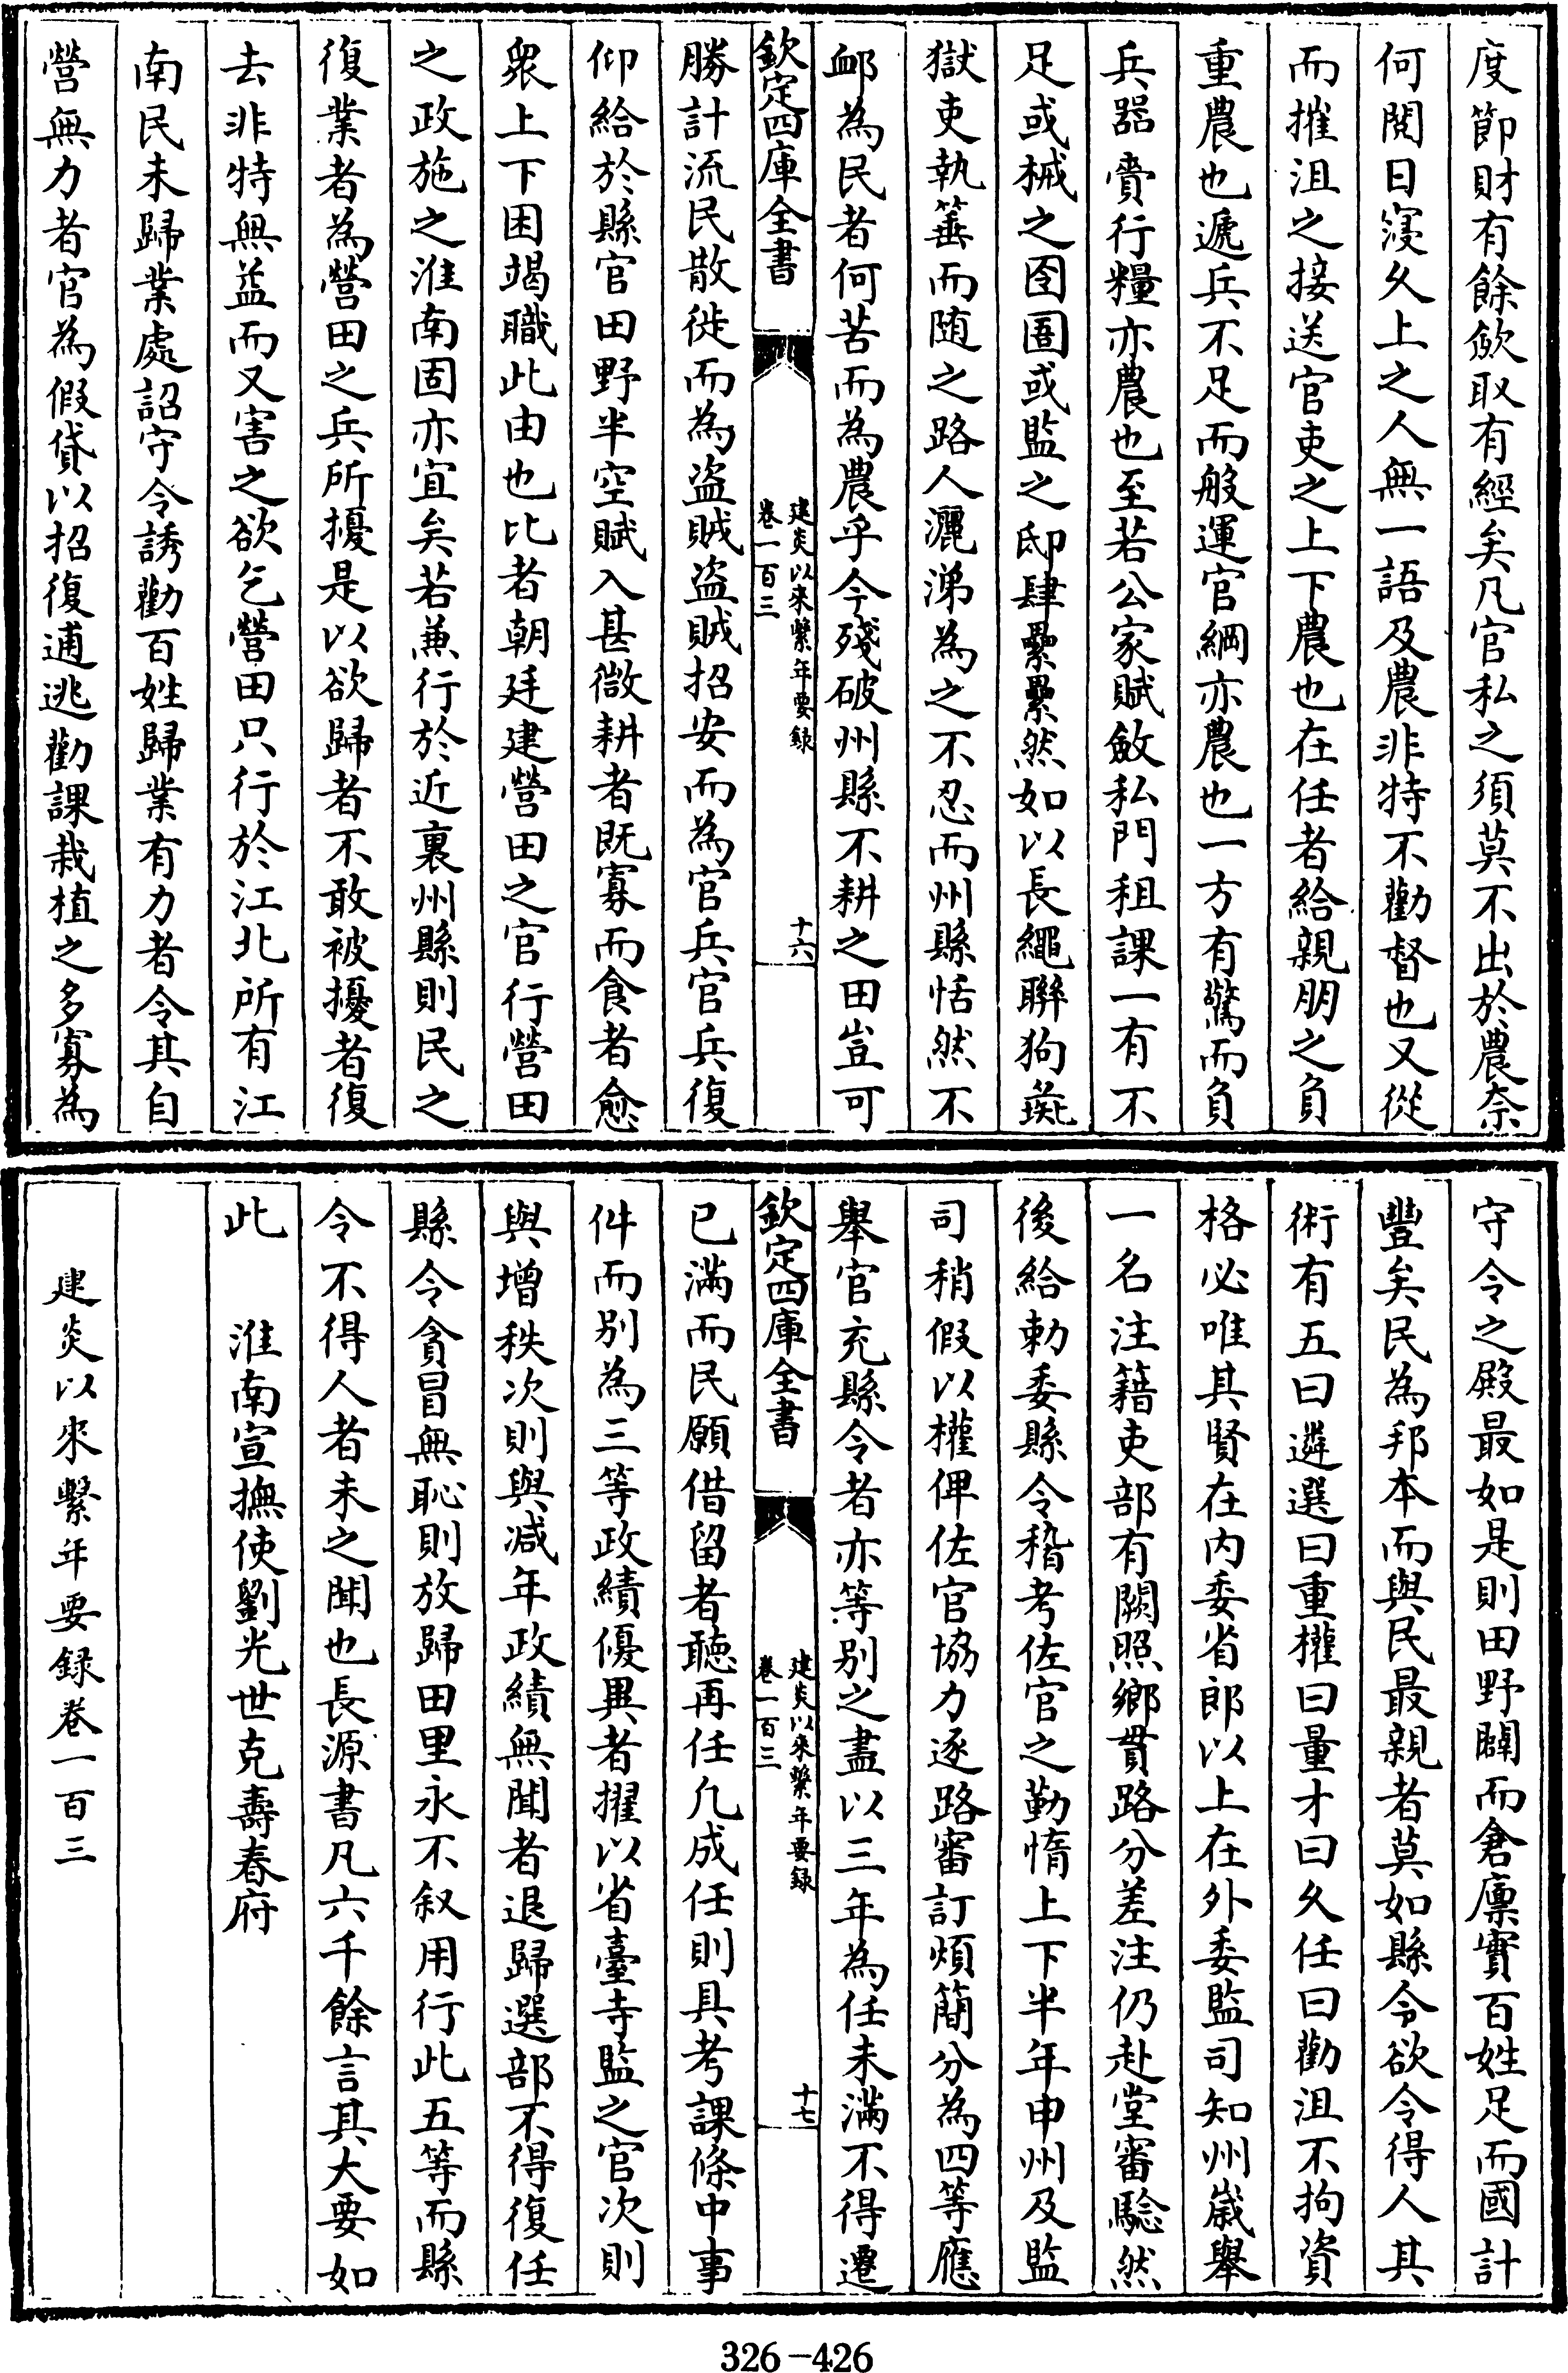 度節財有餘斂取有經矣凡官私之須莫不出於農奈
何閱日寖久上之人無一語及農非特不勸督也又從
而摧沮之接送官吏之上下農也在任者給親朋之負
重農也遞兵不足而般運官綱亦農也一方有驚而負
兵器賫行糧亦農也至若公家賦斂私門租課一有不
足或械之囹圄或監之邸肆纍纍然如以長繩聯狗彘
獄吏執箠而随之路人灑涕為之不忍而州縣恬然不
䘏為民者何苦而為農乎今殘破州縣不耕之田豈可
欽定四庫全書
建炎以來繫年要録
卷一百三
十六
勝計流民散徙而為盗賊盗賊招安而為官兵官兵復
仰給於縣官田野半空賦入甚微耕者既寡而食者愈
衆上下困竭職此由也比者朝廷建營田之官行營田
之政施之淮南固亦宜矣若兼行於近裏州縣則民之
復業者為營田之兵所擾是以欲歸者不敢被擾者復
去非特無益而又害之欲乞營田只行於江北所有江
南民未歸業處詔守令誘勸百姓歸業有力者令其自
營無力者官為假貸以招復逋逃勸課栽植之多寡為
守令之殿最如是則田野闢而倉廩實百姓足而國計
豐矣民為邦本而與民最親者莫如縣令欲令得人其
術有五曰遴選曰重權曰量才曰久任曰勸沮不拘資
格必唯其賢在内委省郎以上在外委監司知州嵗舉
一名注籍吏部有闕照鄉貫路分差注仍赴堂審驗然
後給勅委縣令稽考佐官之勤惰上下半年申州及監
司稍假以權俾佐官協力逐路審訂煩簡分為四等應
舉官充縣令者亦等别之盡以三年為任未滿不得遷
欽定四庫全書
建炎以來繫年要録
卷一百三
十七
已滿而民願借留者聽再任凡成任則具考課條中事
件而别為三等政績優異者擢以省臺寺監之官次則
與增秩次則與减年政績無聞者退歸選部不得復任
縣令貪冒無恥則放歸田里永不叙用行此五等而縣
令不得人者未之聞也長源書凡六千餘言其大要如
此　淮南宣撫使劉光世克壽春府
建炎以來繫年要録卷一百三
326-426